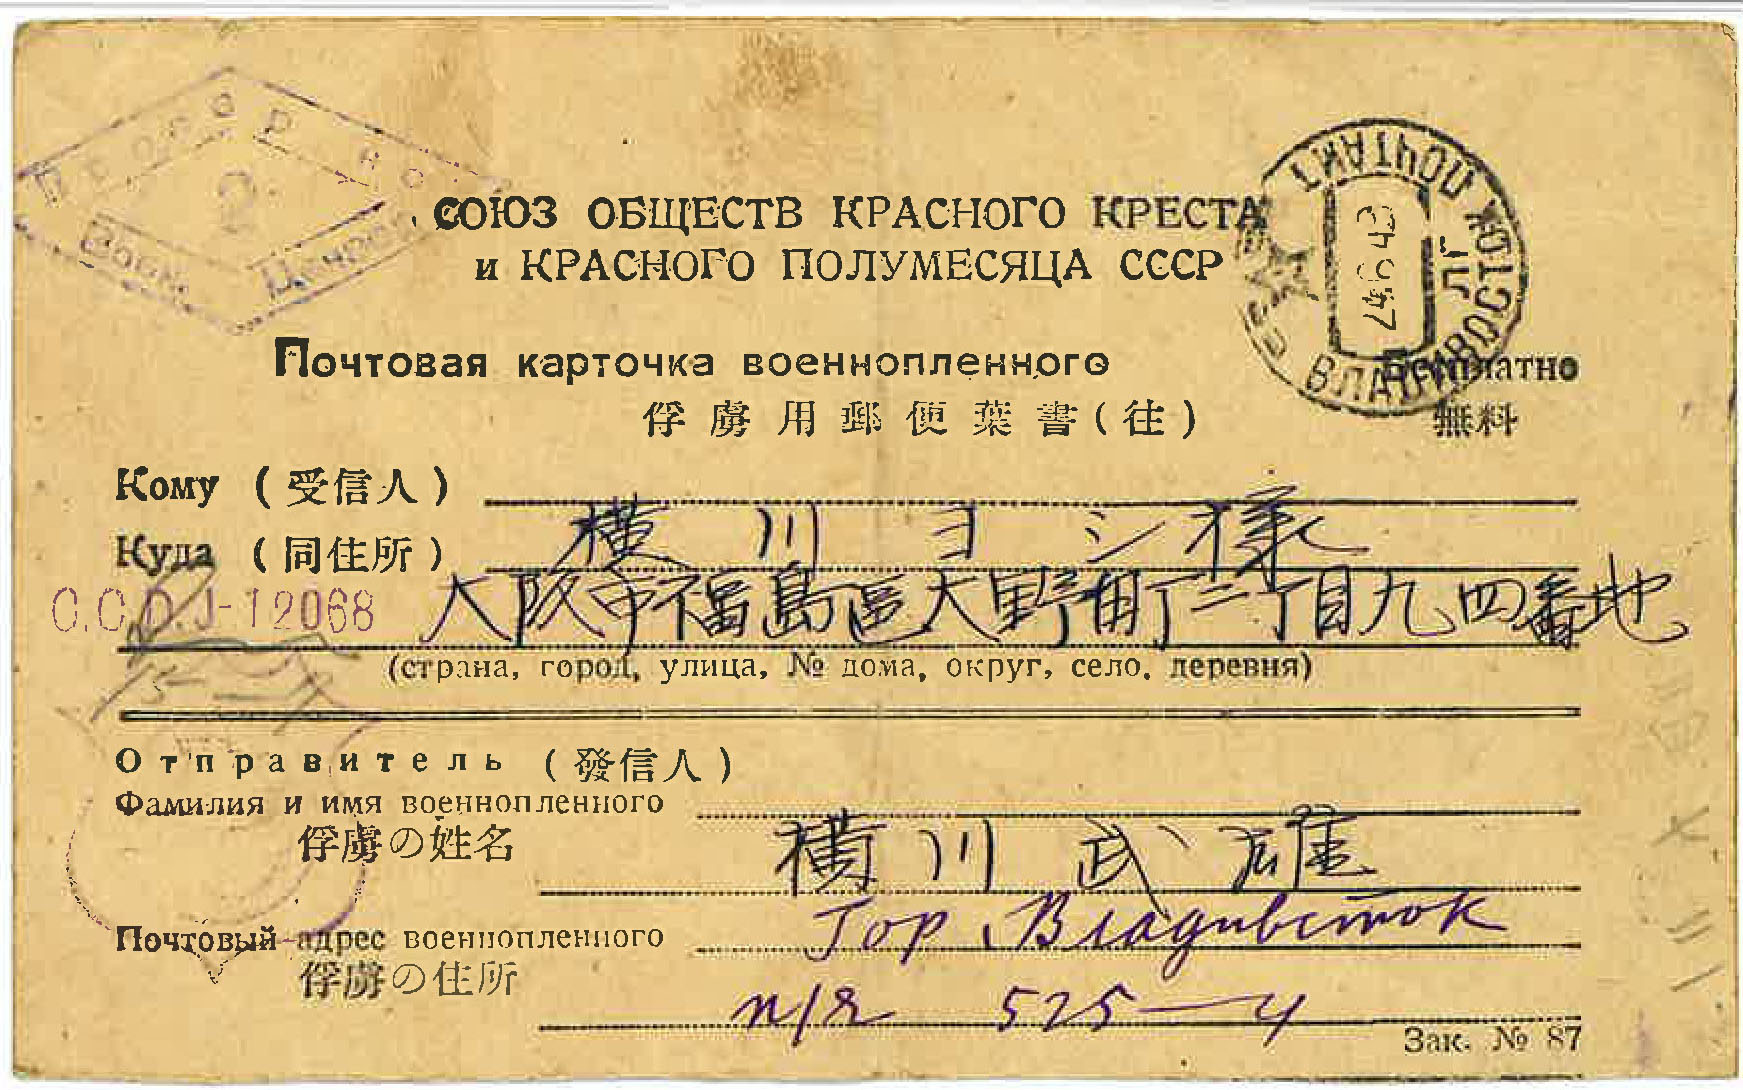 СОЮЗ ОБЩЕСТВ КРАСНОГО КРЕСТА
и КРАСНОГО ПОЛУМЕСЯЦА СССР
ПОЧТАМТ
ВЛАДИВОСТОК
Почтовая карточка военнопленного
Бесплатно
俘虜用郵便葉書(往)
無料
Кому (受信人)
横川ヨシ様
Куда (同住所)
C.C.D.J-12068
大阪市福島區大野町二丁目九四番地
(страна, город, улица, № дома, округ, село, деревня)
Отправитель (發信人)
Фамилия и имя военнопленного
俘虜の姓名
横川武雄
Почтовый адрес военнопленного
Гор. Владивсток
俘虜の住所
п/я 525-4
Зак. № 87